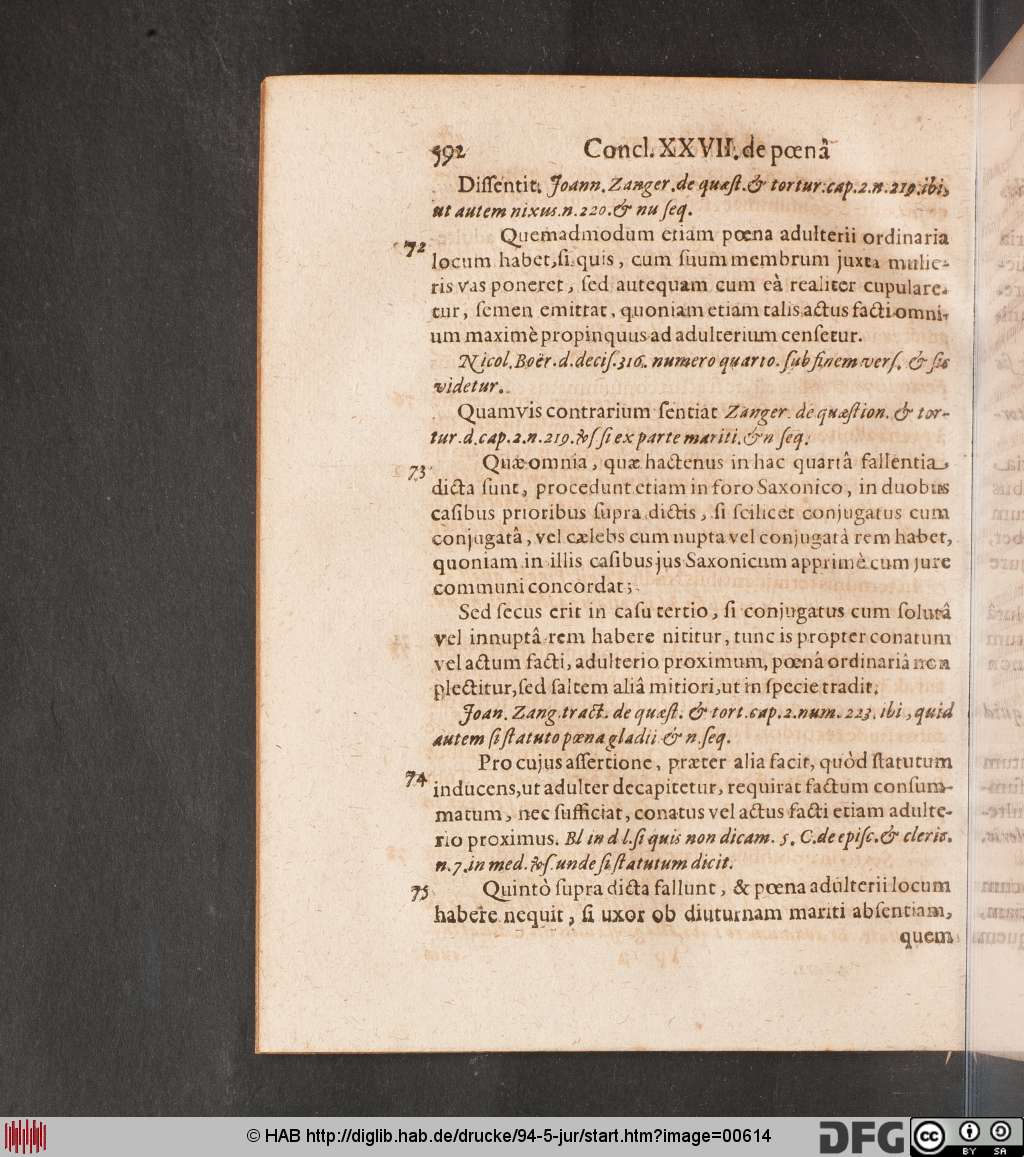 592 Concl. XXVII. de pœnâ
Diſſentit. Joann. Zanger. de quæſt. & tortur. cap. 2. n. 219. ibi,
ut autem nixus. n. 220. & nu ſeq.
72 Quemadmodum etiam pœna adulterii ordinaria
locum habet, ſi quis, cum ſuum membrum juxta mulie-
ris vas poneret, ſed autequam cum eà realiter cupulare-
tur, ſemen emittat, quoniam etiam talis actus facti omni-
um maximè propinquus ad adulterium cenſetur.
Nicol. Boër. d. deciſ. 316. numero quarto. ſub finem verſ. & ſic
videtur.
Quamvis contrarium ſentiat Zanger. de quæſtion. & tor-
tur. d. cap. 2. n. 219. ꝟſ ſi ex parte mariti. & n ſeq.
73 Quæ omnia, quæ hactenus in hac quartâ fallentia,
dicta ſunt, procedunt etiam in foro Saxonico, in duobus
caſibus prioribus ſupra dictis, ſi ſcilicet conjugatus cum
conjugatâ, vel cælebs cum nupta vel conjugatà rem habet,
quoniam in illis caſibus jus Saxonicum apprimè cum jure
communi concordat;
Sed ſecus erit in caſu tertio, ſi conjugatus cum ſolutâ
vel innuptâ rem habere nititur, tunc is propter conatum
vel actum facti, adulterio proximum, pœnâ ordinariâ non
plectitur, ſed ſaltem aliâ mitiori, ut in ſpecie tradit.
Joan. Zang. tract. de quæſt. & tort. cap. 2. num. 223. ibi, quid
autem ſi ſtatuto pœna gladii & n. ſeq.
74 Pro cujus aſſertione, præter alia facit, quòd ſtatutum
inducens, ut adulter decapitetur, requirat factum conſum-
matum, nec ſufficiat, conatus vel actus facti etiam adulte-
rio proximus. Bl in d l. ſi quis non dicam. 5. C. de epiſc. & cleric.
n. 7. in med. ꝟſ. unde ſi ſtatutum dicit.
75 Quintò ſupra dicta fallunt, & pœna adulterii locum
habere nequit, ſi uxor ob diuturnam mariti abſentiam,
quem
© HAB http://diglib.hab.de/drucke/94-5-jur/start.htm?image=00614
DFG
cc BY SA